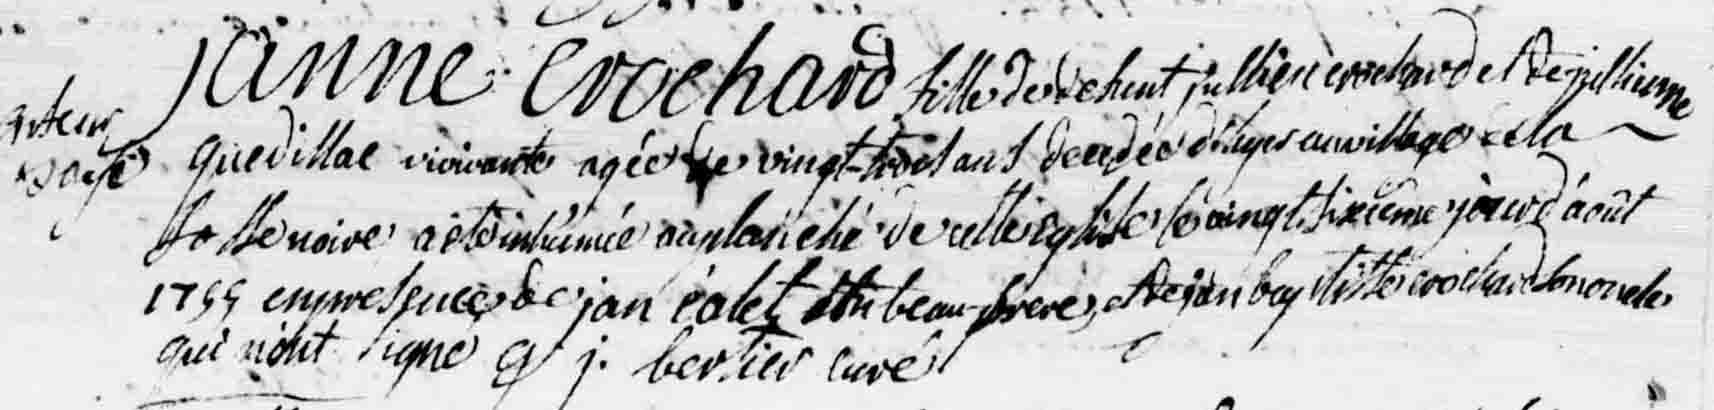 janne Crochard fille de defunt jullien crochard et de jullienne
quedillac vivante agée de vingt-trois ans decedée d'hyer au village de la
fosse noire a eté inhumée au planché de cette eglise le vingt sixieme jour d'août
1755 en presence de jan éalet son beau-frere, et de jan baptiste crochard son oncle
qui n'ont signé j. bertier curé